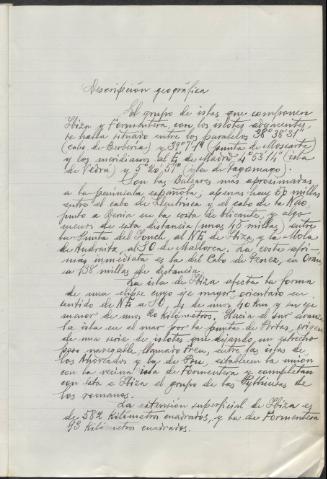 Descripción geográfica
El grupo de islas que componen
Ibiza y Formentera, con los islotes adyacentes,
se halla situado entre los paralelos 38° 38' 31"
(cabo de Berbería) y 39° 7' (punta de Moscarte)
y los meridianos al E. de Madrid 4° 53' 14" (isla
de Vedrá) y 5° 20' 51" (isla de Tagomago).
Son las Baleares más aproximadas
a la península española, apenas hay 60 millas
entre el cabo de y el cabo de la Nao,
junto a Denia en la costa de Alicante, y algo
menos de esta distancia (unas 45 millas) entre
la Punta del al NE de Ibiza, y la Mola
de Andraitx, al SO de Mallorca. La costa afri-
más inmediata es la del Cabo de Tenez, en Orán
a 138 millas de distancia.
La isla de Ibiza afecta la forma
de una elipse cuyo eje mayor, orientado en
sentido de NE a SO, es de unos 40 km y su eje
menor de unos 20 kilómetros. Hacia el sur avanza
la isla en el mar por la punta de Portas, origen
de una serie de islotes que dejando un estrecho
paso navegable llamado Freu, entre las islas de
los Ahorcados y la de establecen la unión
con la vecina isla de Formentera y completan
con ésta e Ibiza el grupo de las Pythiusas de
los romanos.
La extensión superficial de Ibiza es
de 582 kilómetros cuadrados, y la de Formentera
93 kilómetros cuadrados.